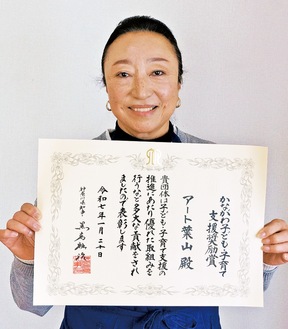 かながわ子ども・子育て
支援奨励賞
アート葉山 殿
貴団体は子ども・子育て支援の
推進にあたり優れた取組みを
行うなど多大な貢献をされ
ましたので表彰します
令和七年一月二十日